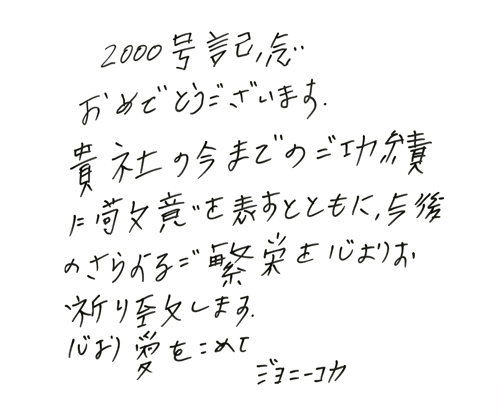 2000号記念
おめでとうございます.
貴社の今までのご功績
に敬意を表すとともに,今後
のさらなるご繁栄を心よりお
祈り致します.
心より愛をこめて
ジョニー・コカ